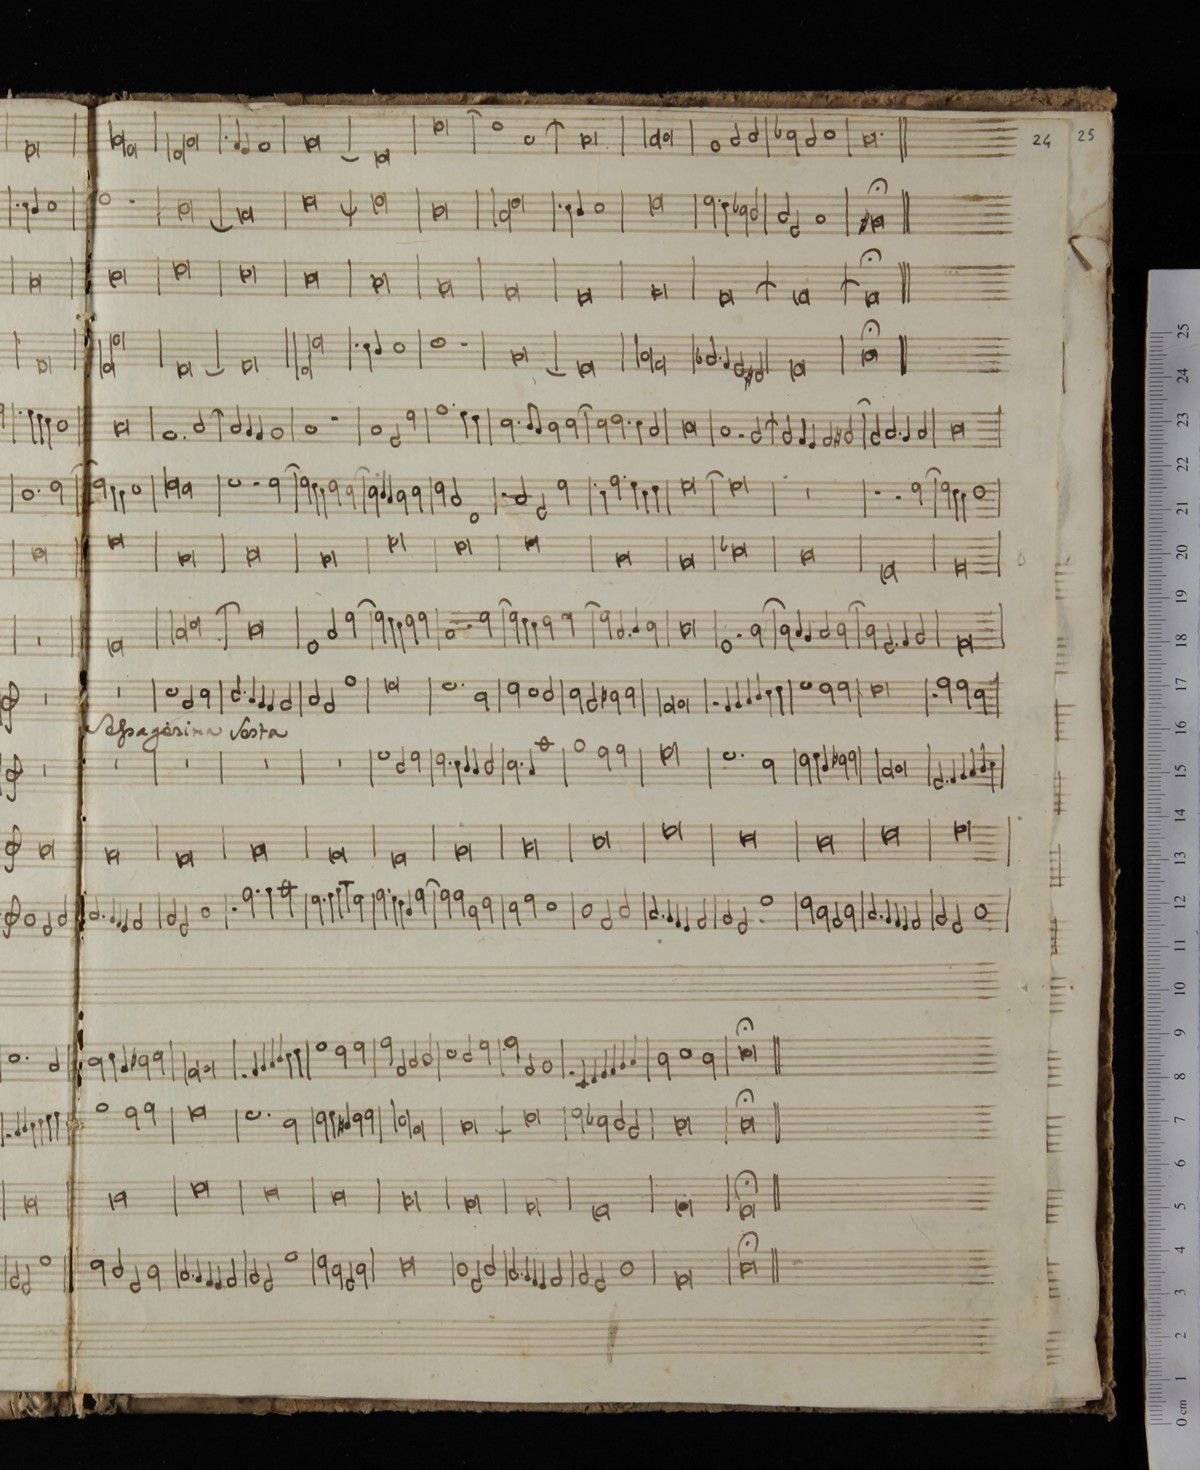 24 25
Sesta
25
24
23
22
21
20
19
18
17
16
15
14
13
12
11
10
9
8
7
6
5
4
3
2
1
0 cm